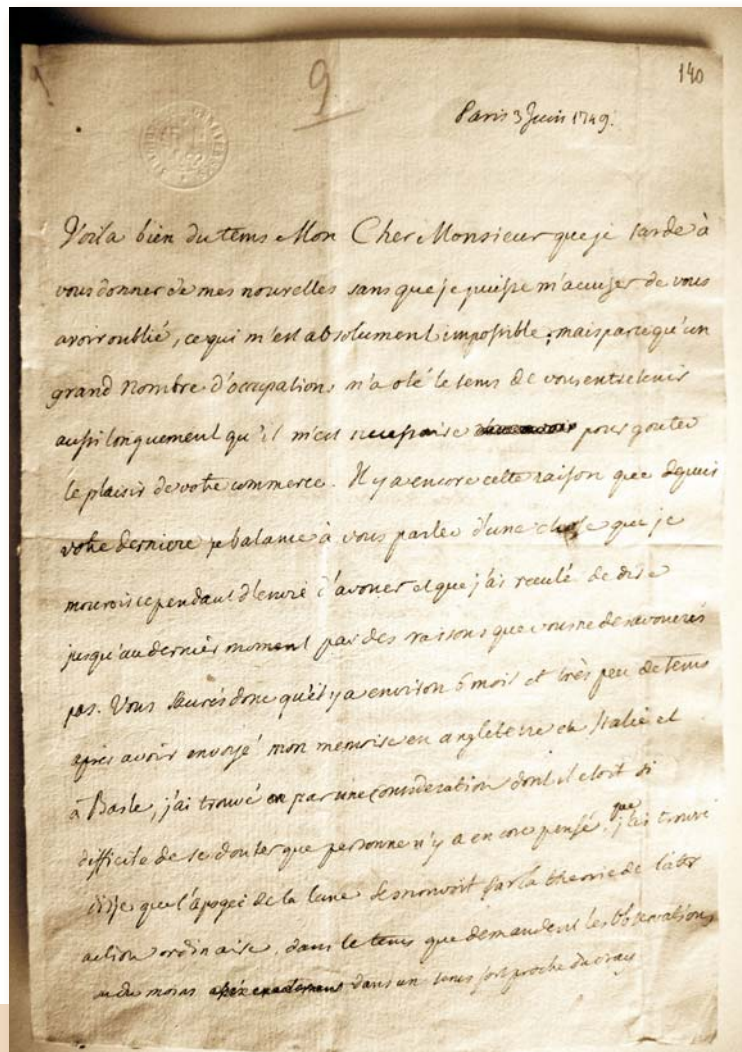 9
140
Paris 3 Juin 1749.
Voila bien du tems Mon Cher Monsieur que je tarde à
vous donner de mes nouvelles sans que je puisse m'accuser de vous
avoir oublié, ce qui m'est absolument impossible; mais parce qu'un
grand nombre d'occupations m'a oté le tems de vous entretenir
aussi longuement qu'il m'est necessaire pour gouter
le plaisir de votre commerce. Il y a encore cette raison que depuis
votre derniere je balance à vous parler d'une chose que je
mourois cependant d'envie d'avouer et que j'ai reculé de dire
jusqu'au dernier moment par des raisons que vous ne desavouerés
pas. Vous saurés donc qu'il y a environ 6 mois et très peu de tems
après avoir envoyé mon memoire en angleterre en Italie et
à Basle, j'ai trouvé par une consideration dont il etoit si
difficile de se douter que personne n'y a encore pensé, que j'ai trouvé
dis je que l'apogée de la lune se mouvoit par la theorie de l'attr
action ordinaire, dans le tems que demandent les Observations
ou du moins dans un tems fort proche du vray